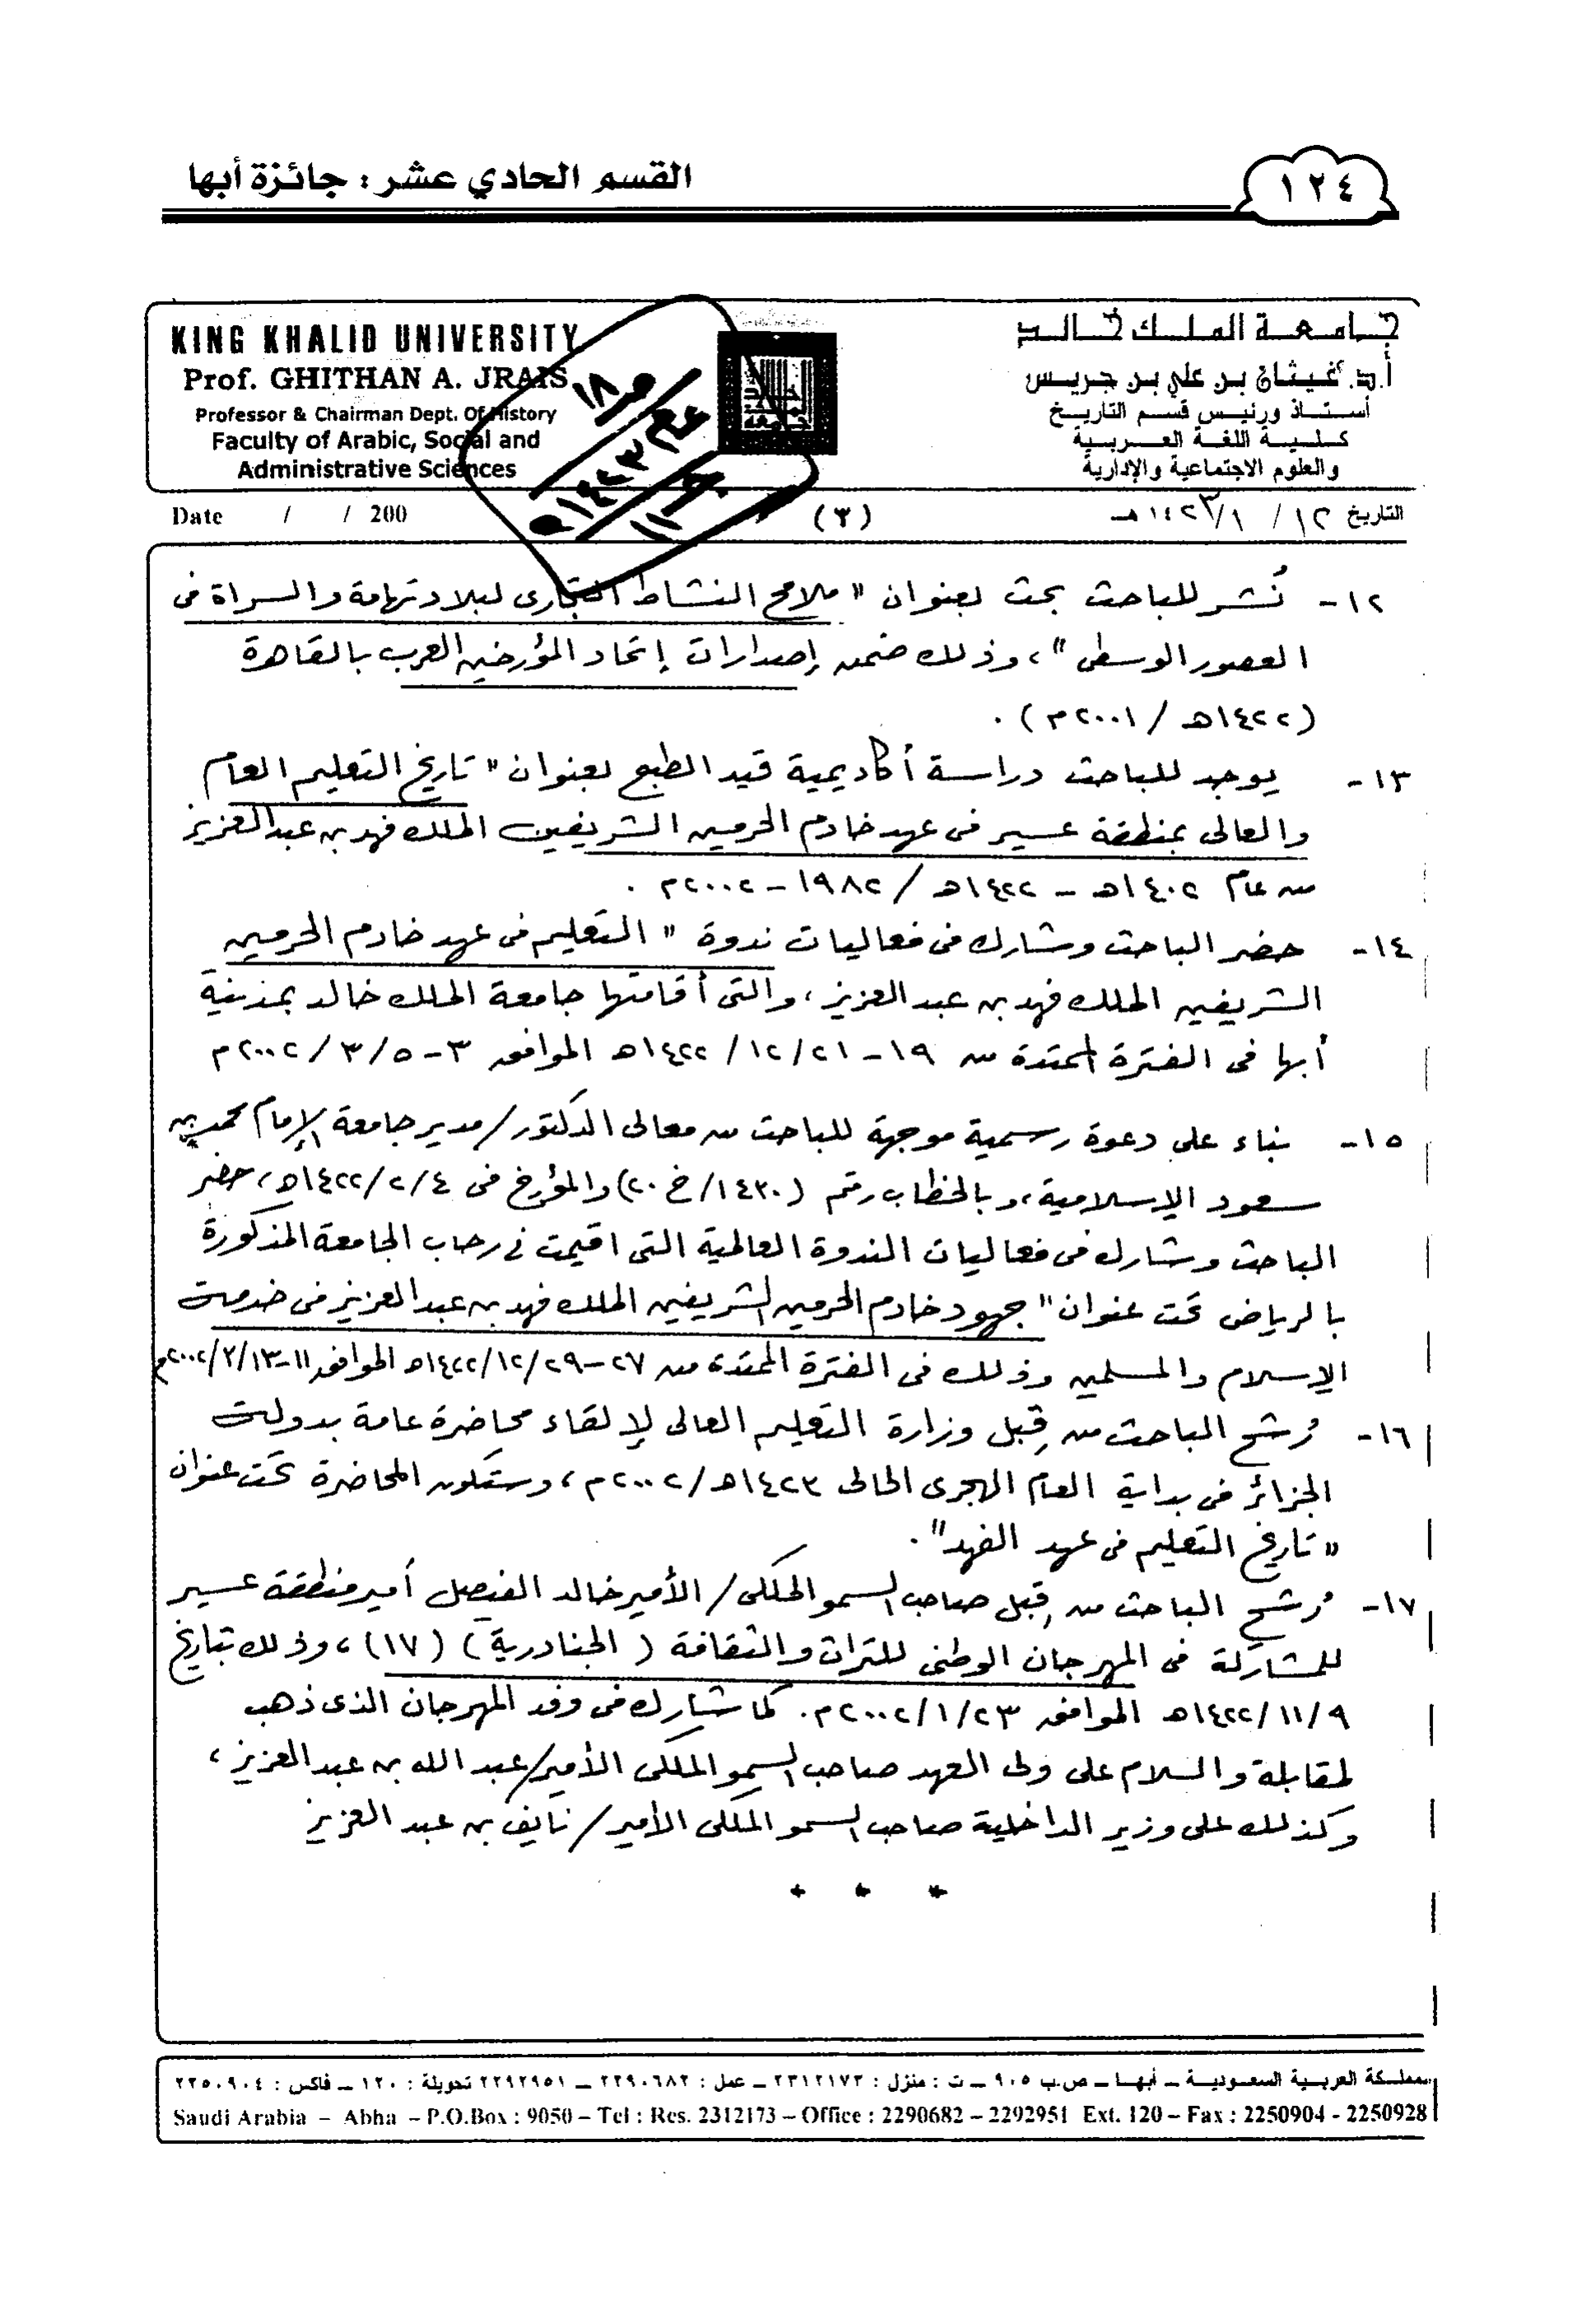 القسم الحادي عشر : جائزة أبها
١٢٤
KING KHALID UNIVERSITY
Prof. GHITHAN A. JRAIS
Professor & Chairman Dept. Of History
Faculty of Arabic, Social and
Administrative Sciences
جامعة الملك خالد
أ.د. غيثان بن علي بن جريس
أستاذ ورئيس قسم التاريخ
كلية اللغة العربية
والعلوم الاجتماعية والإدارية
عام ١٤٢٣هـ
Date / / 200
(٣)
التاريخ ١٢ / ١/ ١٤٢٣هـ
١٢- نُشر للباحث بحث بعنوان " ملامح النشاط التجارى لبلاد تهامة والسراة فى
العصور الوسطى "، وذلك ضمن إصدارات إتحاد المؤرخين العرب بالقاهرة
(١٤٢٢هـ / ٢٠٠١م) .
١٣- يوجد للباحث دراسة أكاديمية قيد الطبع بعنوان " تاريخ التعليم العام
والعالى بمنطقة عسير فى عهد خادم الحرمين الشريفين الملك فهد بن عبدالعزيز
من عام ١٤٠٢هـ - ١٤٢٢هـ / ١٩٨٢ - ٢٠٠٢م .
١٤- حضر الباحث وشارك فى فعاليات ندوة " التعليم فى عهد خادم الحرمين
الشريفين الملك فهد بن عبد العزيز، والتى أقامتها جامعة الملك خالد بمدينة
أبها فى الفترة الممتدة من ١٩ - ٢١/ ١٢/ ١٤٢٢هـ الموافق ٣ - ٥/ ٣/ ٢٠٠٢م
١٥- بناء على دعوة رسمية موجهة للباحث من معالى الدكتور/ مدير جامعة الإمام محمد بن
سعود الإسلامية، وبالخطاب رقم (١٤٣٠/ خ ٢٠) والمؤرخ فى ٤/ ٢/ ١٤٢٢هـ، حضر
الباحث وشارك فى فعاليات الندوة العالمية التى اقيمت فى رحاب الجامعة المذكورة
بالرياض تحت عنوان " جهود خادم الحرمين الشريفين الملك فهد بن عبد العزيز فى خدمت
الإسلام والمسلمين وذلك فى الفترة الممتدة من ٢٧ - ٢٩/ ١٢/ ١٤٢٢هـ الموافق ١١-١٣/ ٣/ ٢٠٠٢م
١٦- رُشح الباحث من قِبل وزارة التعليم العالى لإلقاء محاضرة عامة بدولت
الجزائر فى بداية العام الهجرى الحالى ١٤٢٣هـ/ ٢٠٠٢م، وستكون المحاضرة تحت عنوان
" تاريخ التعليم فى عهد الفهد" .
١٧- رُشح الباحث من قِبل صاحب السمو الملكى/ الأمير خالد الفيصل أمير منطقة عسير
للمشاركة فى المهرجان الوطنى للتراث والثقافة ( الجنادرية ) (١٧)، وذلك بتاريخ
٩/ ١١/ ١٤٢٢هـ الموافق ٢٣/ ١/ ٢٠٠٢م. كما شارك فى وفد المهرجان الذى ذهب
لمقابلة والسلام على ولى العهد صاحب السمو الملكى الأمير/ عبد الله بن عبد العزيز ،
وكذلك على وزير الداخلية صاحب السمو الملكى الأمير/ نايف بن عبد العزيز
* * *
المملكة العربية السعودية – أبها – ص.ب ٩٠٥ – ت : منزل : ٢٣١٢١٧٣ – عمل : ٢٢٩٠٦٨٢ – ٢٢٩٢٩٥١ تحويلة : ١٢٠ – فاكس : ٢٢٥٠٩٠٤
Saudi Arabia – Abha – P.O.Box : 9050 – Tel : Res. 2312173 – Office : 2290682 – 2292951 Ext. 120 – Fax : 2250904 - 2250928